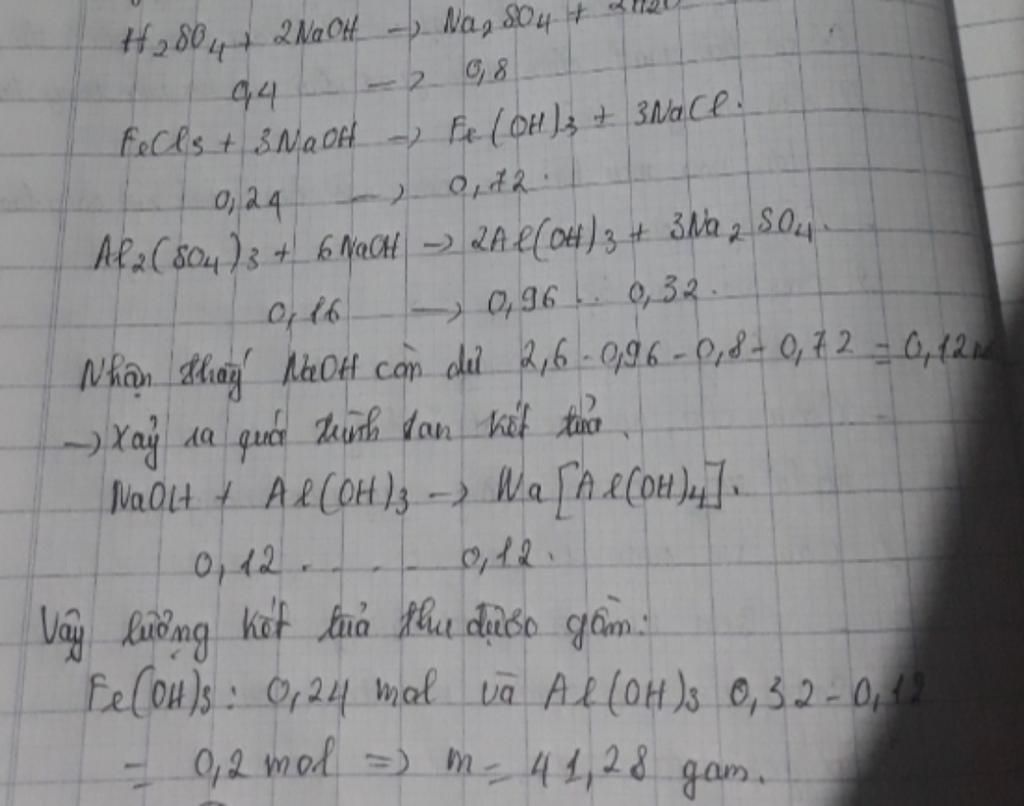 H₂SO₄ + 2NaOH → Na₂SO₄ + 2H₂O
0,4 → 0,8
FeCl₃ + 3NaOH → Fe(OH)₃ + 3NaCl.
0,24 → 0,72.
Al₂(SO₄)₃ + 6NaOH → 2Al(OH)₃ + 3Na₂SO₄.
0,16 → 0,96 .. 0,32.
Nhận thấy NaOH còn dư 2,6 - 0,96 - 0,8 - 0,72 = 0,12
→ Xảy ra quá trình tan kết tủa.
NaOH + Al(OH)₃ → Na[Al(OH)₄].
0,12 . . . . 0,12.
Vậy lượng kết tủa thu được gồm:
Fe(OH)₃: 0,24 mol và Al(OH)₃ 0,32 - 0,12
= 0,2 mol => m = 41,28 gam.